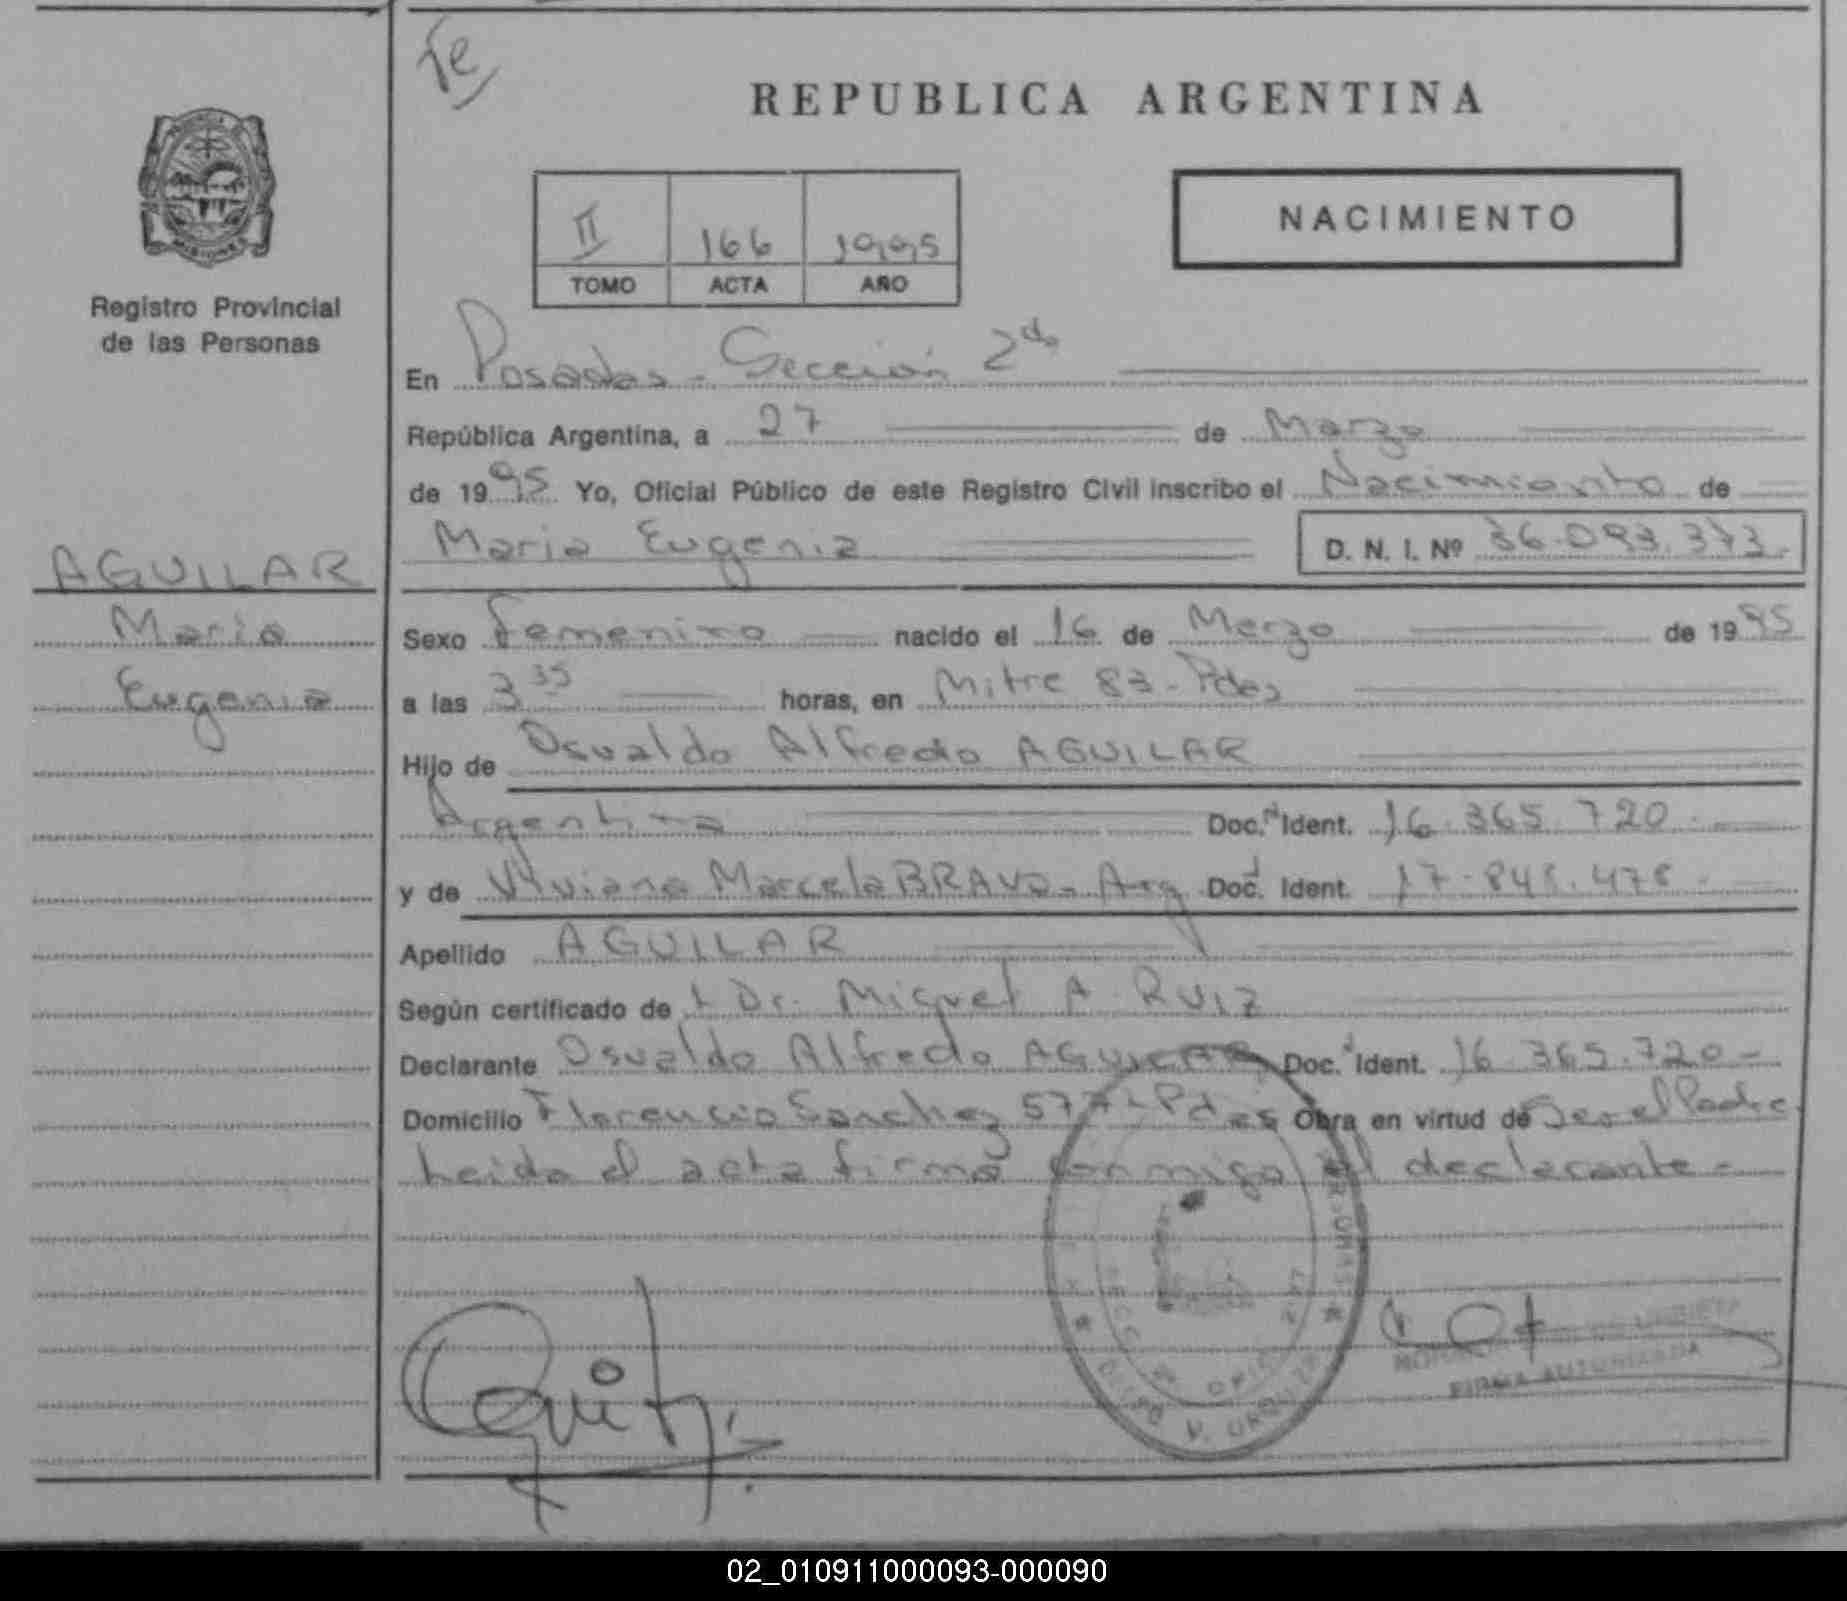 Te
REPUBLICA ARGENTINA
II 166 1995
TOMO ACTA AÑO
NACIMIENTO
Registro Provincial
de las Personas
En Posadas - Sección 2da
República Argentina, a 27 de Marzo
de 1995 Yo, Oficial Público de este Registro Civil inscribo el Nacimiento de
Maria Eugenia D. N. I. Nº 36.093.373.
AGUILAR
Maria
Eugenia
Sexo Femenino nacido el 16 de Marzo de 1995
a las 3 35 horas, en Mitre 83 - Pdas
Hijo de Osvaldo Alfredo AGUILAR
Argentina Doc. Ident. 16.365.720.
y de Viviana Marcela BRAVO - Arg Doc. Ident. 17.848.478.
Apellido AGUILAR
Según certificado de Dr. Miguel A. RUIZ
Declarante Osvaldo Alfredo AGUILAR Doc. Ident. 16.365.720 -
Domicilio Florencio Sanchez 577 - Pdas Obra en virtud de Ser el Padre
Leida el acta firma conmigo el declarante -
FIRMA AUTORIZADA
02_010911000093-000090